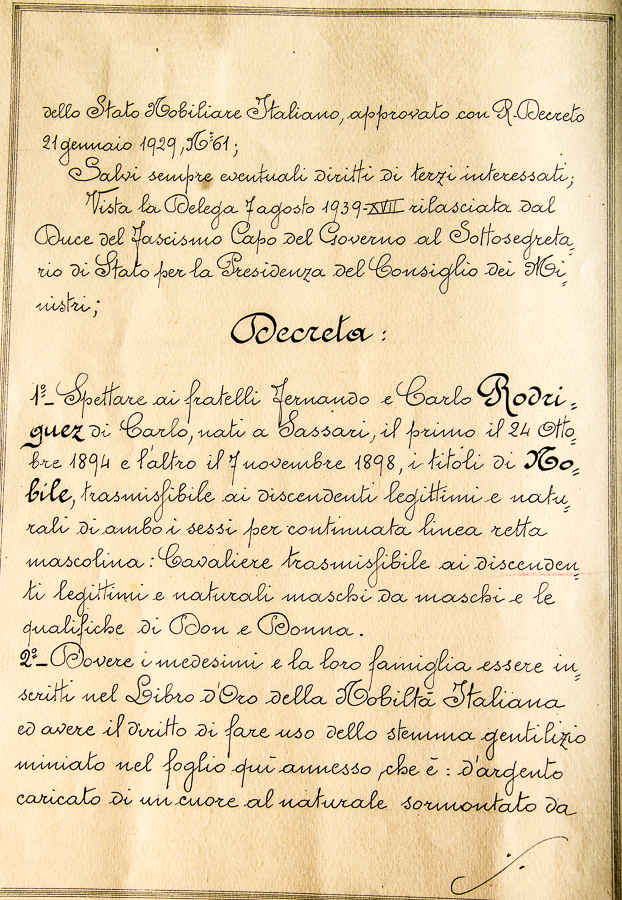 dello Stato Nobiliare Italiano, approvato con R. Decreto
21 gennaio 1929, N° 61;
Salvi sempre eventuali diritti di terzi interessati;
Vista la Delega 7 agosto 1939-XVII rilasciata dal
Duce del Fascismo Capo del Governo al Sottosegreta=
rio di Stato per la Presidenza del Consiglio dei Mi=
nistri;
Decreta:
1°- Spettare ai fratelli Fernando e Carlo Rodri=
guez di Carlo, nati a Sassari, il primo il 24 Otto=
bre 1894 e l'altro il 7 novembre 1898, i titoli di No=
bile, trasmissibile ai discendenti legittimi e natu=
rali di ambo i sessi per continuata linea retta
mascolina: Cavaliere trasmissibile ai discenden=
ti legittimi e naturali maschi da maschi e le
qualifiche di Don e Donna.
2°- Dovere i medesimi e la loro famiglia essere in=
scritti nel Libro d'Oro della Nobiltà Italiana
ed avere il diritto di fare uso dello stemma gentilizio
miniato nel foglio quì annesso, che è: d'argento
caricato di un cuore al naturale sormontato da
./.